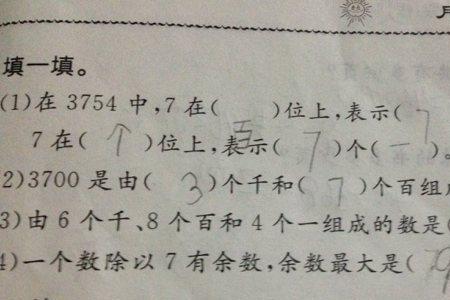 填一填。
(1)在 3754 中,7 在( )位上,表示( 7
百
7 在( 个 )位上,表示( 7 )个( 一 )。
2)3700 是由( 3 )个千和( 7 )个百组
3)由 6 个千、8 个百和 4 个一组成的数是(
4)一个数除以 7 有余数,余数最大是(